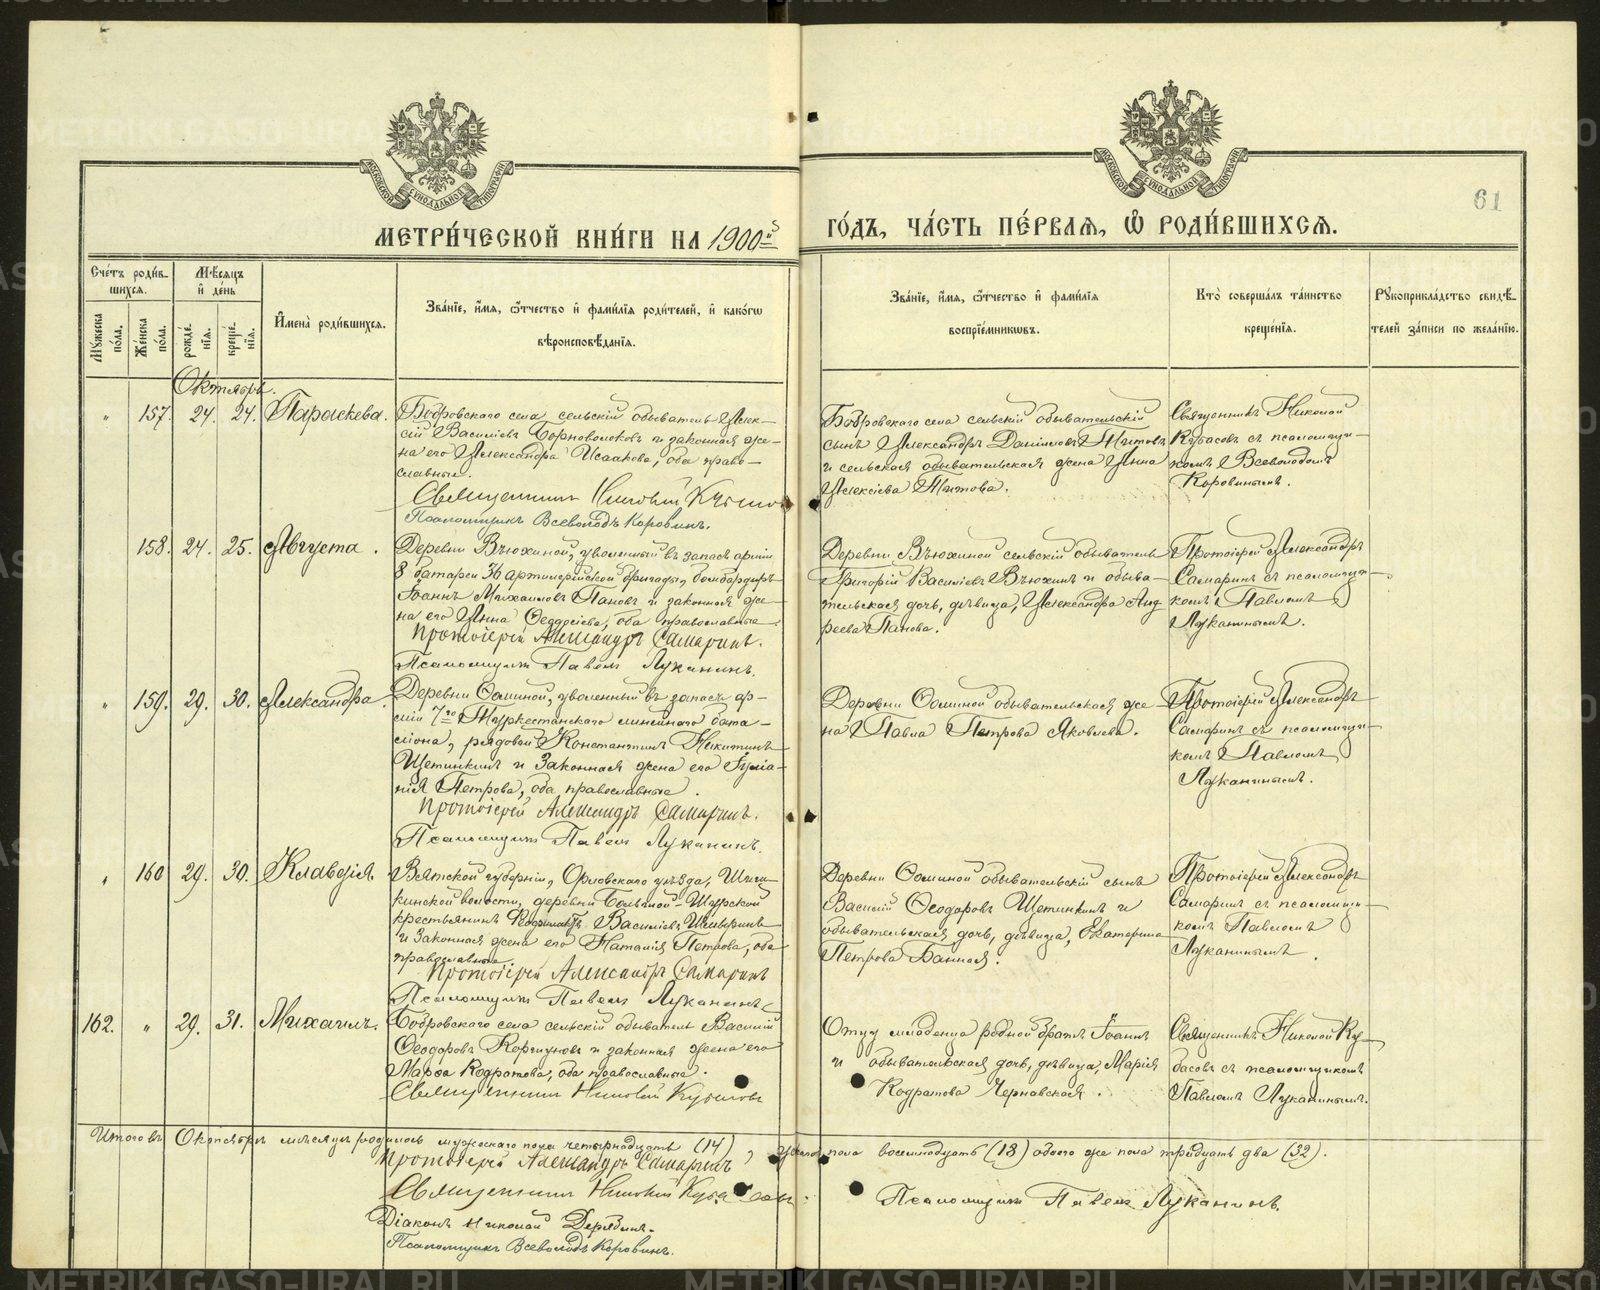 МОСКОВСКОЙ СѴНОДАЛЬНОЙ ТИПОГРАФІИ
МОСКОВСКОЙ СѴНОДАЛЬНОЙ ТИПОГРАФІИ
61
МЕТРИ́ЧЕСКОЙ КНИ́ГИ НА 1900й
ГО́ДЪ, ЧА́СТЬ ПЕ́РВАѦ, Ѽ РОДИ́ВШИХСѦ.
Сче́тъ роди́в-
шихсѧ.
Мѣ́сѧцъ
и҆ де́нь
Мꙋ́жеска
по́ла.
Же́нска
по́ла.
рожде́-
нїѧ.
креще́-
нїѧ.
И҆мена̀ роди́вшихсѧ.
Зва́нїе, и҆́мѧ, ѻ҆́тчество и҆ фами́лїѧ роди́телей, и҆ како́гѡ
вѣроисповѣ́данїѧ.
Зва́нїе, и҆́мѧ, ѻ҆́тчество и҆ фами́лїѧ
воспрїе́мникѡвъ.
Кто̀ соверша́лъ та́инство
креще́нїѧ.
Рꙋкоприкла́дство свидѣ́-
телей за́писи по жела́нїю.
Октябрь.
" 157. 24. 24. Параскева.
Бобровскаго села сельскій обыватель Алек-
сій Васильевъ Черноволоковъ и законная же-
на его Александра Исаакова, оба право-
славные.
Священникъ Николай
Псаломщикъ Всеволодъ Коровинъ.
Бобровскаго села сельскій обывательскій
сынъ Александръ Даніиловъ Титовъ
и сельская обывательская жена Анна
Алексіева Титова.
Священникъ Николай
Кубасовъ съ псаломщи-
комъ Всеволодомъ
Коровинымъ.
158. 24. 25. Августа.
Деревни Вьюхиной, уволенный въ запасъ арміи
8 батареи 36 артиллерійской бригады, бомбардиръ
Іоаннъ Михаиловъ Пановъ и законная же-
на его Анна Ѳеодосіева, оба православные
Протоіерей Александръ Самаринъ.
Псаломщикъ Павелъ Луканинъ.
Деревни Вьюхиной сельскій обыватель
Григорій Васильевъ Вьюхинъ и обыва-
тельская дочь, дѣвица, Александра Анд-
реева Панова.
Протоіерей Александръ
Самаринъ съ псаломщи-
комъ Павломъ
Луканинымъ.
" 159. 29. 30. Александра.
Деревни Ѳоминой, уволенный въ запасъ ар-
міи 7го Туркестанскаго линейнаго бата-
ліона, рядовой Константинъ Никитинъ
Щетинкинъ и законная жена его Іуліа-
нія Петрова, оба православные.
Протоіерей Александръ Самаринъ.
Псаломщикъ Павелъ Луканинъ.
Деревни Ѳоминой обывательская же-
на Павла Петрова Яковлева.
Протоіерей Александръ
Самаринъ съ псаломщи-
комъ Павломъ
Луканинымъ.
" 160 29. 30. Клавдія.
Вятской губерніи, Орловскаго уѣзда,
кинской волости, деревни Большой-
крестьянинъ Василіевъ
и законная жена его Наталія Петрова, оба
православные
Протоіерей Александръ Самаринъ
Псаломщикъ Павелъ Луканинъ
Деревни Ѳоминой обывательскій сынъ
Василій Ѳеодоровъ Щетинкинъ и
обывательская дочь, дѣвица, Екатерина
Петрова Банная.
Протоіерей Александръ
Самаринъ съ псаломщи-
комъ Павломъ
Луканинымъ.
162. " 29. 31. Михаилъ.
Бобровскаго села сельскій обыватель Василій
Ѳеодоровъ Коршуновъ и законная жена его
Марѳа Кодратова, оба православные.
Священникъ Николай Кубасовъ
Отцу младенца родной братъ Іоаннъ
и обывательская дочь, дѣвица, Марія
Кодратова Чернавская.
Священникъ Николай Ку-
басовъ съ псаломщикомъ
Павломъ Луканинымъ.
Итого въ Октябрѣ мѣсяцѣ родилось мужскаго пола четырнадцать (14), женскаго пола восемнадцать (18) обоего же пола тридцать два (32).
Протоіерей Александръ Самаринъ
Священникъ Николай Кубасовъ
Псаломщикъ Павелъ Луканинъ.
Діаконъ Николай Дерябинъ.
Псаломщикъ Всеволодъ Коровинъ.
METRIKI.GASO-URAL.RU
METRIKI.GASO-URAL.RU